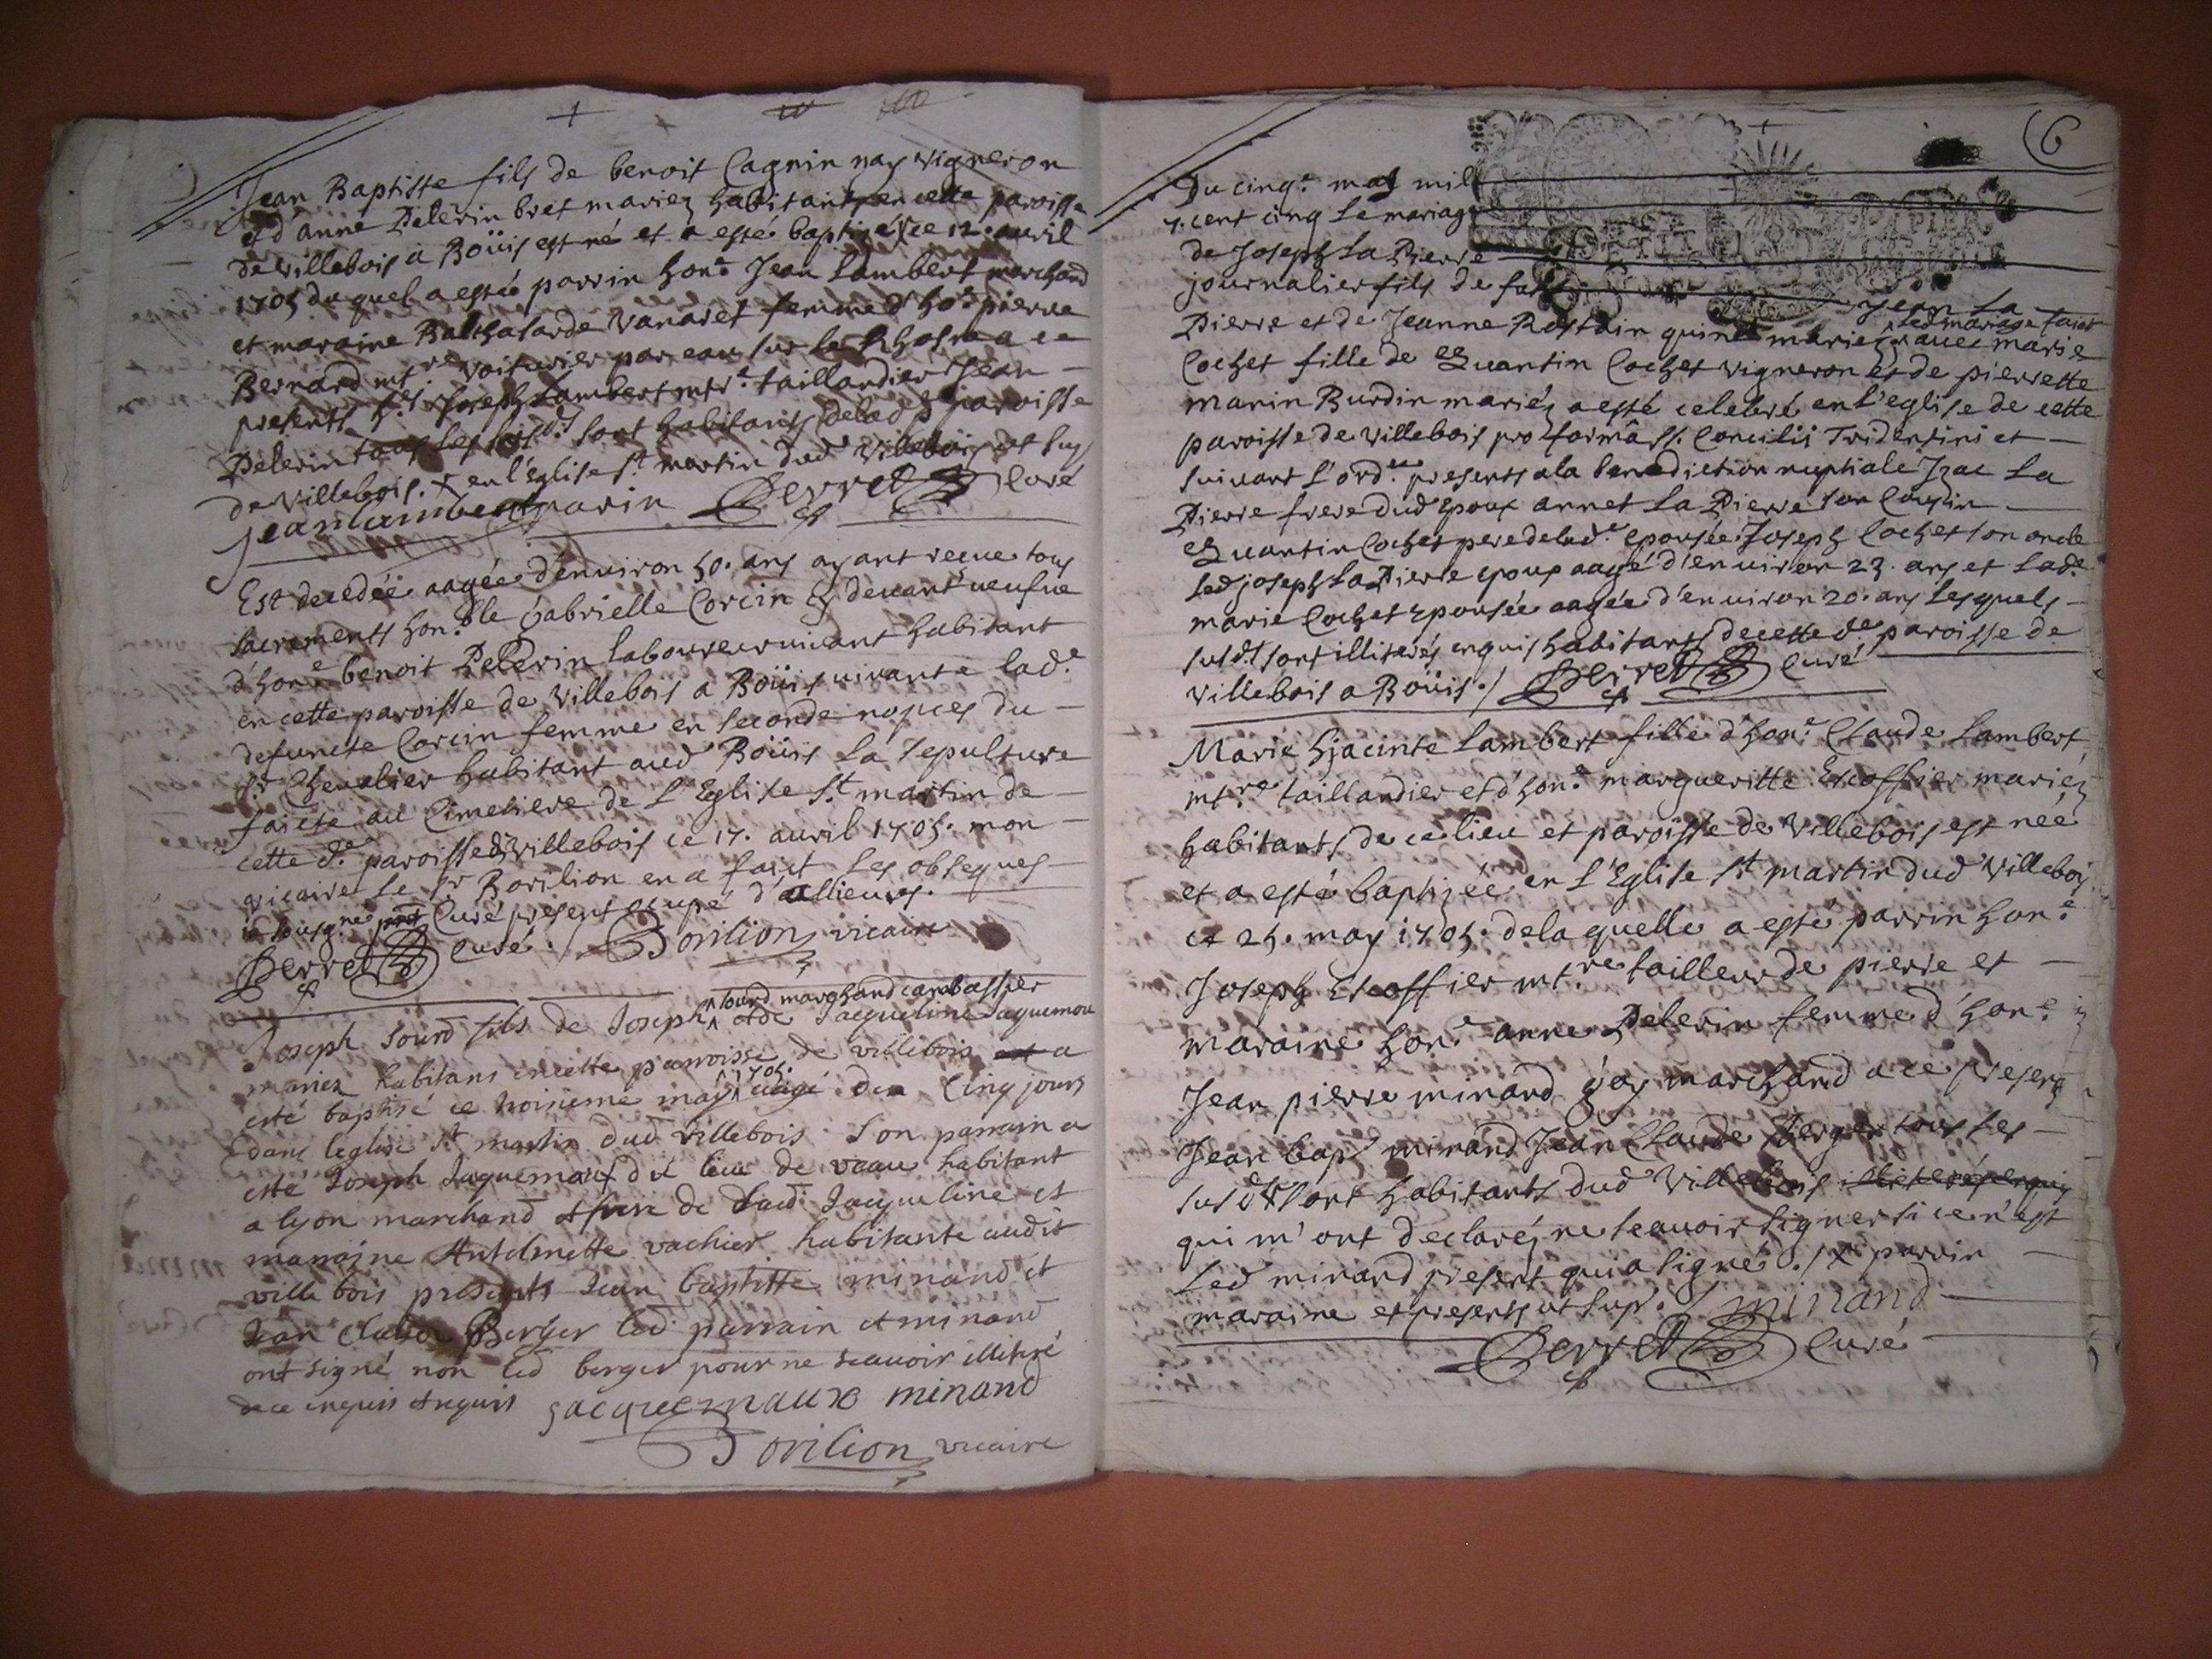 Jean Baptiste fils de benoit Cagnin nay vigneron
et d'anne Pelerin bret mariez habitants en cette paroisse
de villebois a Boüis est né et a esté baptizé x ce 12. avril
1705 duquel a esté parrin hon.e Jean Lambert marchand
et maraine Balthasarde Vanaret femme d'ho.e pierre
Bernard mtre voiturier par eau sur le Rhosne a ce
presents Joseph Lambert mtre. taillandier Jean
Pelerin tous les susd.ts sont habitants de lad.e paroisse
de villebois. x en l'église St martin dud villebois ut sup
Jean lambert parin Perret Curé
Est decedée aagée d'environ 50. ans ayant receue tous
sacrements hon.ble Gabrielle Corcin cy devant veufve
d'hon.e benoit Pelerin laboureur vivant habitant
en cette paroisse de Villebois a Boüis vivante lad.e
defuncte Corcin femme en seconde nopces du
Sr Chevalier habitant aud Boüis la sepulture
faicte au Cimetiere de l'Eglise St martin de
cette d.e paroisse de Villebois ce 17. avril 1705. mon
vicaire le Sr Borilion en a faict les obseques
Curé present occupé d'allieurs.
Perret Curé. / Borilion vicaire
sourd marchand
Joseph Sourd fils de Joseph et de Jacqueline Jaquemou
mariez habitans en cette parroisse de villebois a
1705.
esté baptisé ce troisieme may aagé de Cinq jours
dans leglise St martin dud villebois. Son parrain a
esté Joseph Jaquemaux dit lieu de veau habitant
a lyon marchand et frere de lad. Jacqueline et
marraine Antelmette vachier habitante audit
villebois presents Jean baptiste minand et
Jean Claude Berger led parrain et minand
ont signé non led berger pour ne scauoir illiteré
de ce enquis et requis jacquemaux minand
Borilion vicaire
6
Du cinq.e may mil
7. cent cinq le mariage
de Joseph La Pierre
journalier fils de
Jean La
led mariage faict
Pierre et de Jeanne Rostain mariez avec marie
Cochet fille de Quantin Cochet vigneron et de pierrette
manin Burdin mariéz a esté celebré en l'eglise de cette
paroisse de Villebois pro formâ SS. Concilii Tridentini et
suivant l'ord.re presents a la benediction nuptiale Izac La
Pierre frere dud Epoux annet La Pierre son Cousin
Quantin Cochet pere de lad.e epousée Joseph Cochet son oncle
led joseph La Pierre epoux aagé d'environ 23. ans et lad.e
marie Cochet Epousée aagée d'environ 20. ans lesquels
susd.ts sont illiterés enquis habitants de cette d.e paroisse de
Villebois a Boüis. / Perret Curé
Marie hjacinte Lambert fille d'hon.e Claude Lambert
mt.re taillandier et d'hon.e margueritte Escoffier mariéz
habitants de ce lieu et paroisse de Villebois est neé
et a esté baptizée en l'Eglise St martin dud Villebois
ce 25. may 1705. de laquelle a esté parrin hon.e
Joseph Escoffier mt.re tailleur de pierre et
maraine hon.e anne Pelerin femme d'hon.e
Jean pierre minand marchand a ce presents
Jean bap.t minand Jean Claude Berger tous les
susd.ts sont habitants dud Villebois illiterés enquis
qui m'ont declaréz ne scauoir signer si ce n'est
led minand present qui a signé. / x parrin
maraine et presents ut sup. / minand
Perret Curé